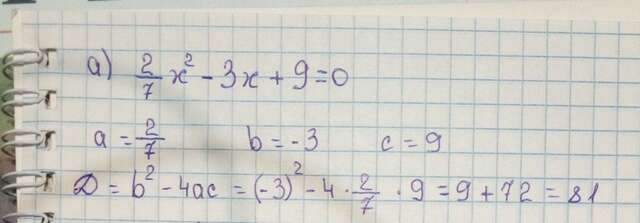 a) 2/7 x² - 3x + 9 = 0
a = 2/7 b = -3 c = 9
D = b² - 4ac = (-3)² - 4 · 2/7 · 9 = 9 + 72 = 81